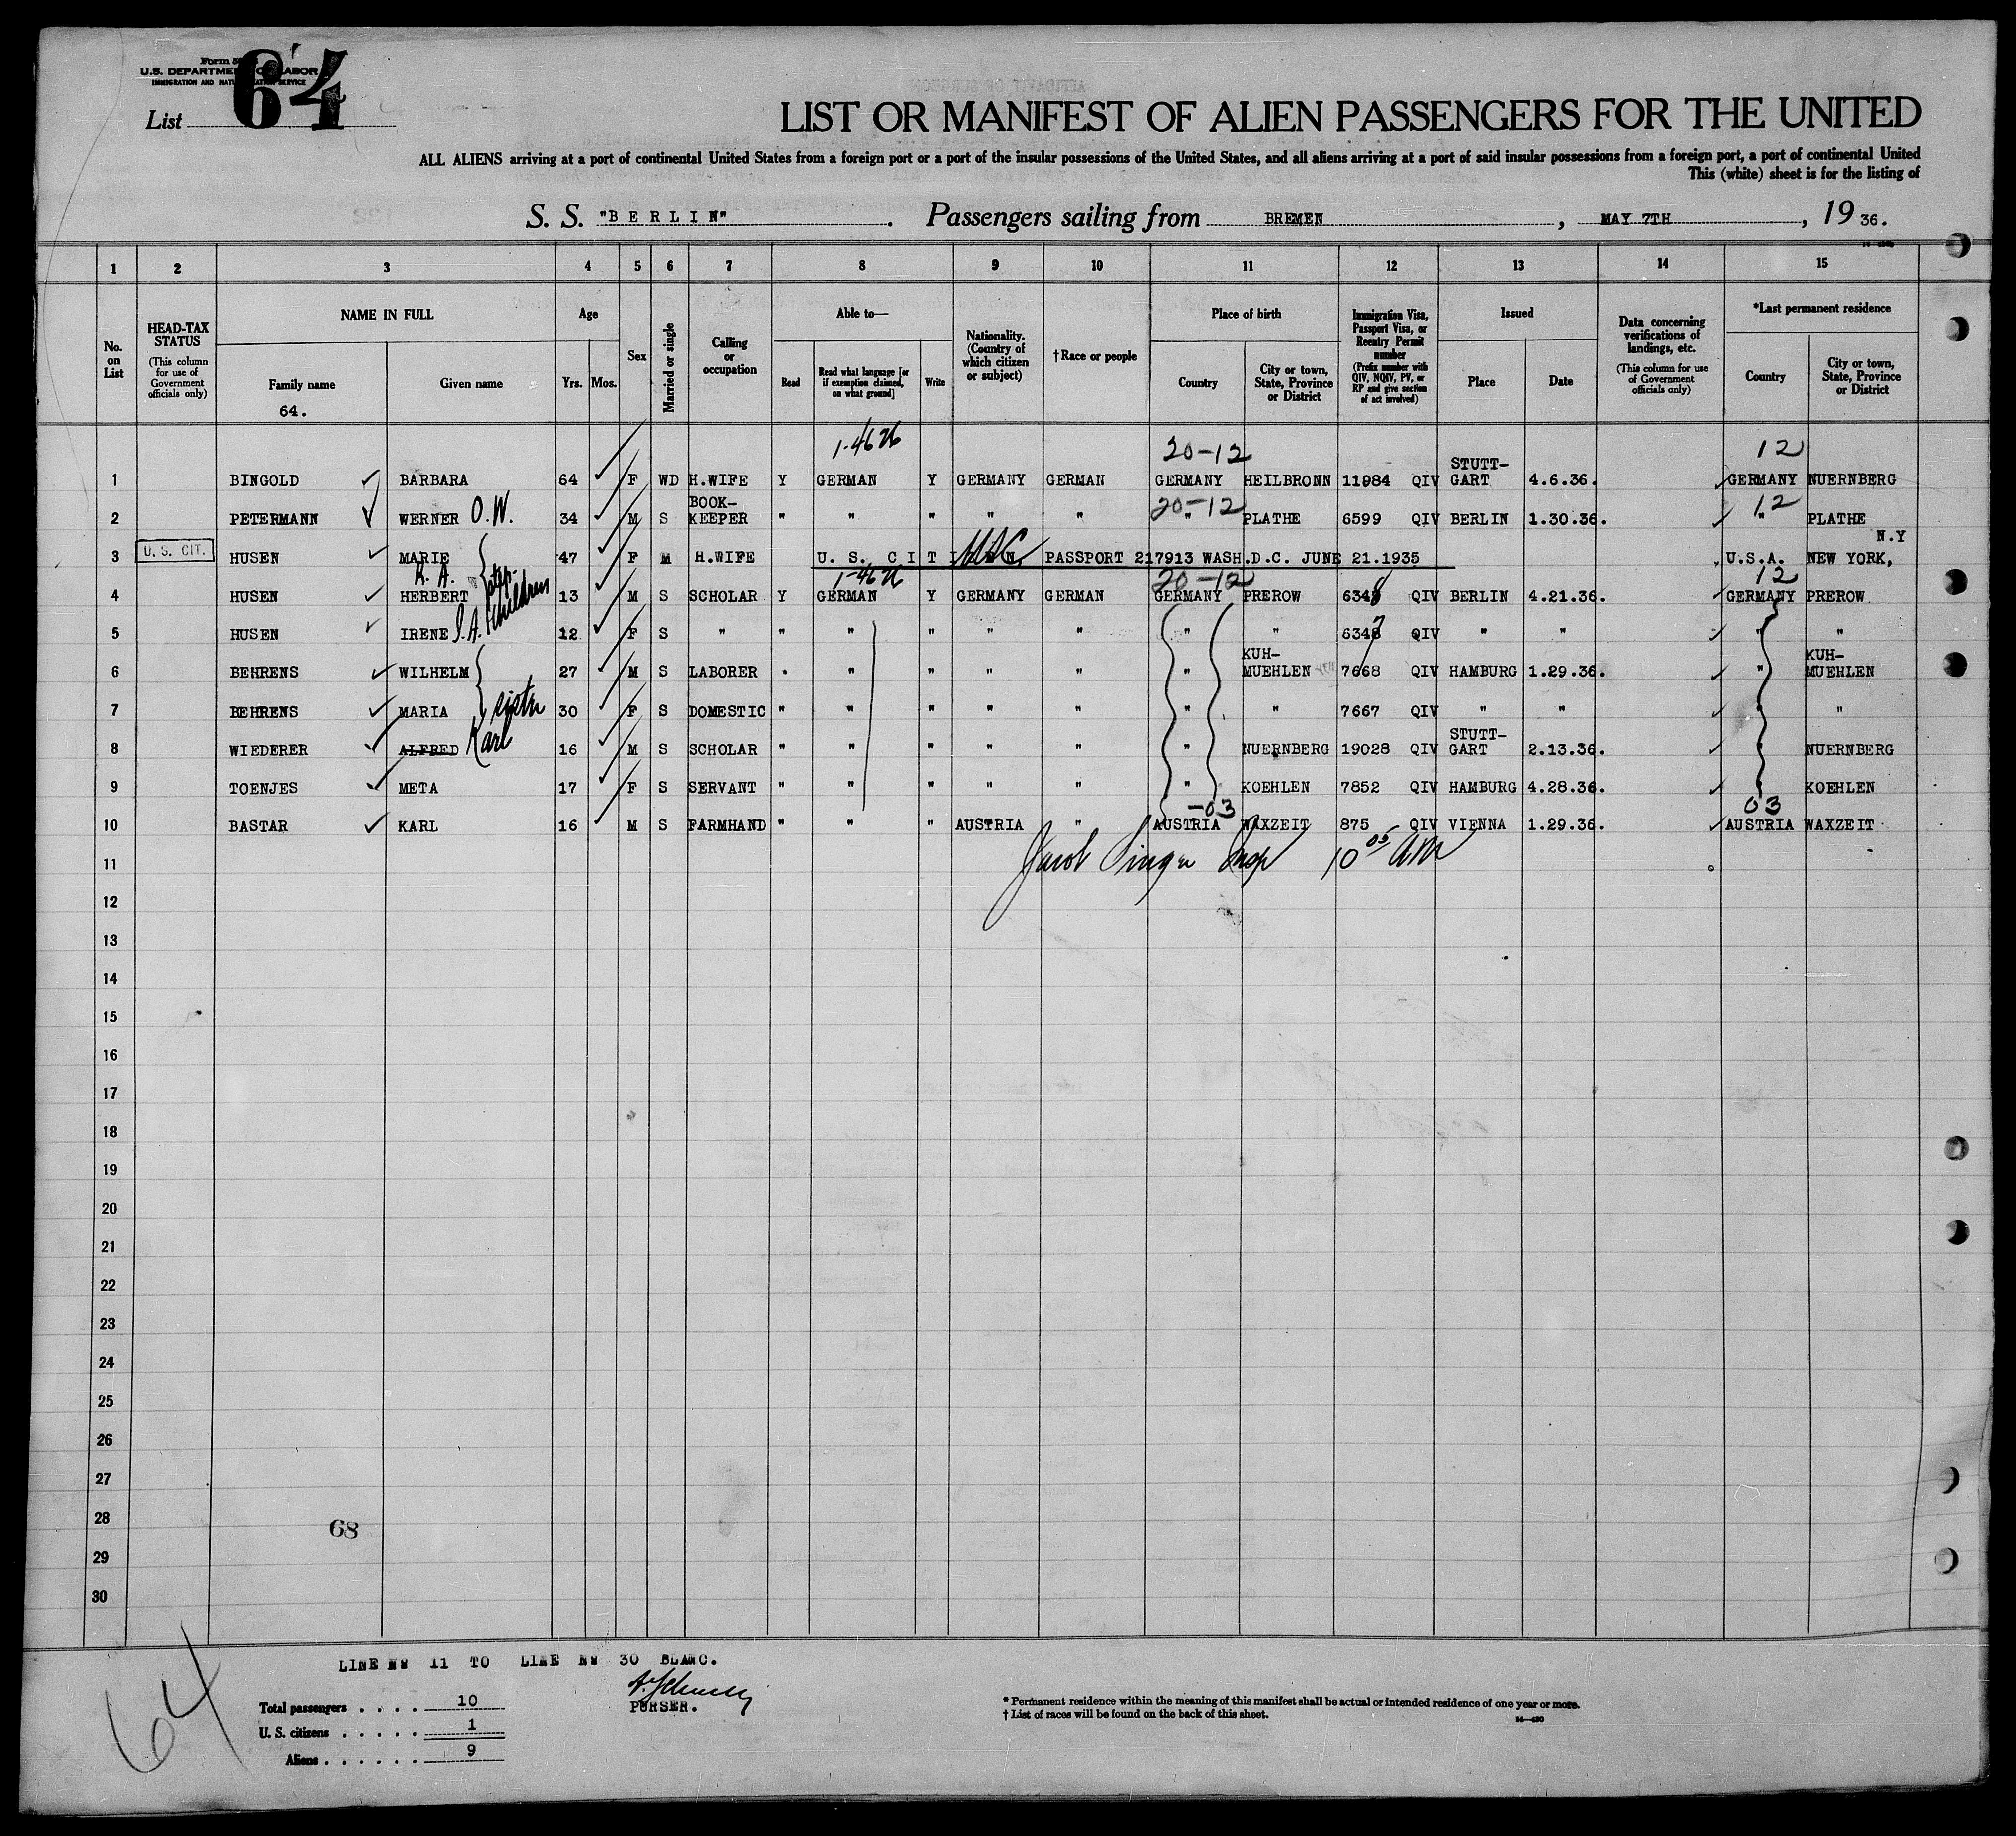 Form 5
U.S. DEPARTMENT OF LABOR
IMMIGRATION AND NATURALIZATION SERVICE
List 64
LIST OR MANIFEST OF ALIEN PASSENGERS FOR THE UNITED
ALL ALIENS arriving at a port of continental United States from a foreign port or a port of the insular possessions of the United States, and all aliens arriving at a port of said insular possessions from a foreign port, a port of continental United
This (white) sheet is for the listing of
S. S. "BERLIN". Passengers sailing from BREMEN, MAY 7TH, 19 36.
1 2 3 4 5 6 7 8 9 10 11 12 13 14 15
No. on List
HEAD-TAX STATUS (This column for use of Government officials only)
NAME IN FULL
Family name
64.
Given name
Age
Yrs. Mos.
Sex
Married or single
Calling or occupation
Able to—
Read
Read what language [or if exemption claimed, on what ground]
Write
Nationality. (Country of which citizen or subject)
†Race or people
Place of birth
Country
City or town, State, Province or District
Immigration Visa, Passport Visa, or Reentry Permit number (Prefix number with QIV, NQIV, PV, or RP and give section of act involved)
Issued
Place
Date
Data concerning verifications of landings, etc. (This column for use of Government officials only)
*Last permanent residence
Country
City or town, State, Province or District
1-4626 20-12 12
1 BINGOLD BARBARA 64 F WD H.WIFE Y GERMAN Y GERMANY GERMAN GERMANY HEILBRONN 11984 QIV STUTT-GART 4.6.36. GERMANY NUERNBERG
20-12 12
2 PETERMANN WERNER O.W. 34 M S BOOK-KEEPER " " " " " " PLATHE 6599 QIV BERLIN 1.30.36. " PLATHE
3 U. S. CIT. HUSEN MARIE 47 F M H.WIFE U. S. CITIZEN PASSPORT 217913 WASH.D.C. JUNE 21.1935 U.S.A. NEW YORK, N.Y
step-children
1-4626 20-12 12
4 HUSEN HERBERT K. A. 13 M S SCHOLAR Y GERMAN Y GERMANY GERMAN GERMANY PREROW 6348 QIV BERLIN 4.21.36. GERMANY PREROW
5 HUSEN IRENE I.A. 12 F S " " " " " " " " 6347 QIV " " " "
6 BEHRENS WILHELM 27 M S LABORER " " " " " " KUH-MUEHLEN 7668 QIV HAMBURG 1.29.36. " KUH-MUEHLEN
7 BEHRENS MARIA sister 30 F S DOMESTIC " " " " " " " 7667 QIV " " " "
8 WIEDERER ALFRED Karl 16 M S SCHOLAR " " " " " " NUERNBERG 19028 QIV STUTT-GART 2.13.36. " NUERNBERG
9 TOENJES META 17 F S SERVANT " " " " " " KOEHLEN 7852 QIV HAMBURG 4.28.36. " KOEHLEN
-03 03
10 BASTAR KARL 16 M S FARMHAND " " " AUSTRIA " AUSTRIA WAXZEIT 875 QIV VIENNA 1.29.36. AUSTRIA WAXZEIT
11 Jacob Singer Insp 10 05 AM
12
13
14
15
16
17
18
19
20
21
22
23
24
25
26
27
28
68
29
30
64
LINE No 11 TO LINE No 30 BLANC.
PURSER.
Total passengers . . . . 10
U. S. citizens . . . . . 1
Aliens . . . . . . 9
* Permanent residence within the meaning of this manifest shall be actual or intended residence of one year or more.
† List of races will be found on the back of this sheet.
14—480